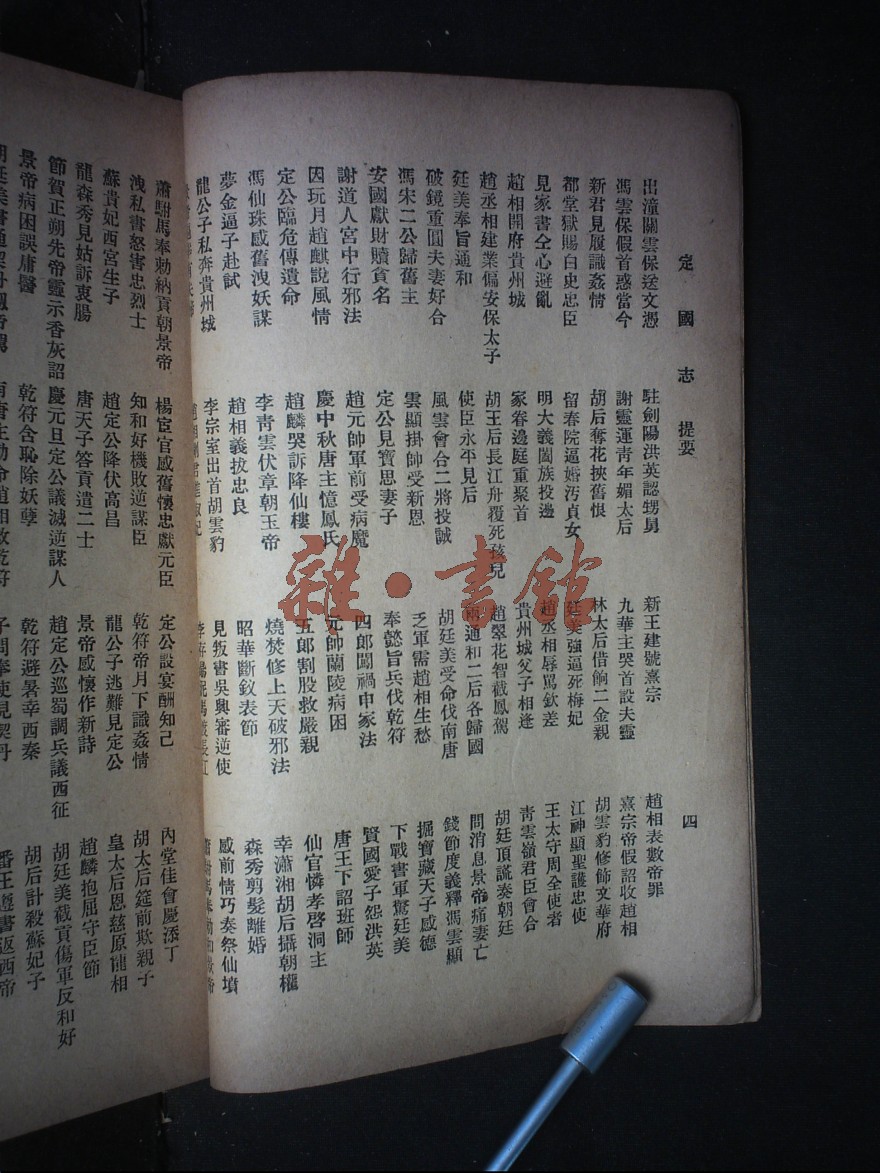 定國志 提要 四
出潼關雲保送文憑 駐劍陽洪英認甥舅 新王建號熹宗 趙相表數帝罪
馮雲保假首惑當今 謝靈運靑年媚太后 九華主哭首設夫靈 熹宗帝假詔收趙相
新君見履識姦情 胡后奪花挾舊恨 林太后借餉二金親 胡雲豹修飾文華府
都堂獄賜白史忠臣 留春院逼婚汚貞女 廷美強逼死梅妃 江神顯聖護忠使
見家書仝心避亂 明大義闔族投邊 趙丞相辱罵欽差 王太守周全使者
趙相開府貴州城 家眷邊庭重聚首 貴州城父子相逢 靑雲嶺君臣會合
趙丞相建業偏安保太子 胡王后長江舟覆死孩兒 趙翠花智截鳳駕 胡廷頂謊奏朝廷
廷美奉旨通和 使臣永平見后 兩通和二后各歸國 問消息景帝痛妻亡
破鏡重圓夫妻好合 風雲會合二將投誠 胡廷美受命伐南唐 錢節度義釋馮雲顯
馮宋二公歸舊主 雲顯掛帥受新恩 乏軍需趙相生愁 掘寶藏天子感德
安國獻財贖貧名 定公見寶思妻子 奉懿旨兵伐乾符 下戰書軍驚廷美
謝道人宮中行邪法 趙元帥軍前受病魔 四郎闖禍申家法 賢國愛子怨洪英
因玩月趙麒說風情 慶中秋唐主憶鳳氏 元帥蘭陵病困 唐王下詔班師
定公臨危傳遺命 趙麟哭訴降仙樓 五郎割股救嚴親 仙官憐孝啓洞主
馮仙珠感舊洩妖謀 李靑雲伏章朝玉帝 燒焚修上天破邪法 幸瀟湘胡后攝朝權
夢金逼子赴試 趙相義拔忠良 昭華斷釵表節 森秀剪髮離婚
龍公子私奔貴州城 李宗室出首胡雲豹 見叛書吳興審逆使 感前情巧奏祭仙墳
蕭駙馬奉勅納貢朝景帝 楊宦官感舊懷忠獻元臣 定公設宴酬知己 內堂佳會慶添丁
洩私書怒害忠烈士 知和好機敗逆謀臣 乾符帝月下識姦情 胡太后筵前欺親子
蘇貴妃西宮生子 趙定公降伏高昌 龍公子逃難見定公 皇太后恩慈原陁相
龍森秀見姑訴衷腸 唐天子答貢遣二士 景帝感懷作新詩 趙麟抱屈守臣節
節賀正朔先帝靈示香灰詔 慶元旦定公議滅逆謀人 趙定公巡蜀調兵議西征 胡廷美截貢傷軍反和好
景帝病困誤庸醫 乾符含恥除妖孽 乾符避暑幸西秦 胡后計殺蘇妃子
番王遵書返西帝
雜·書館